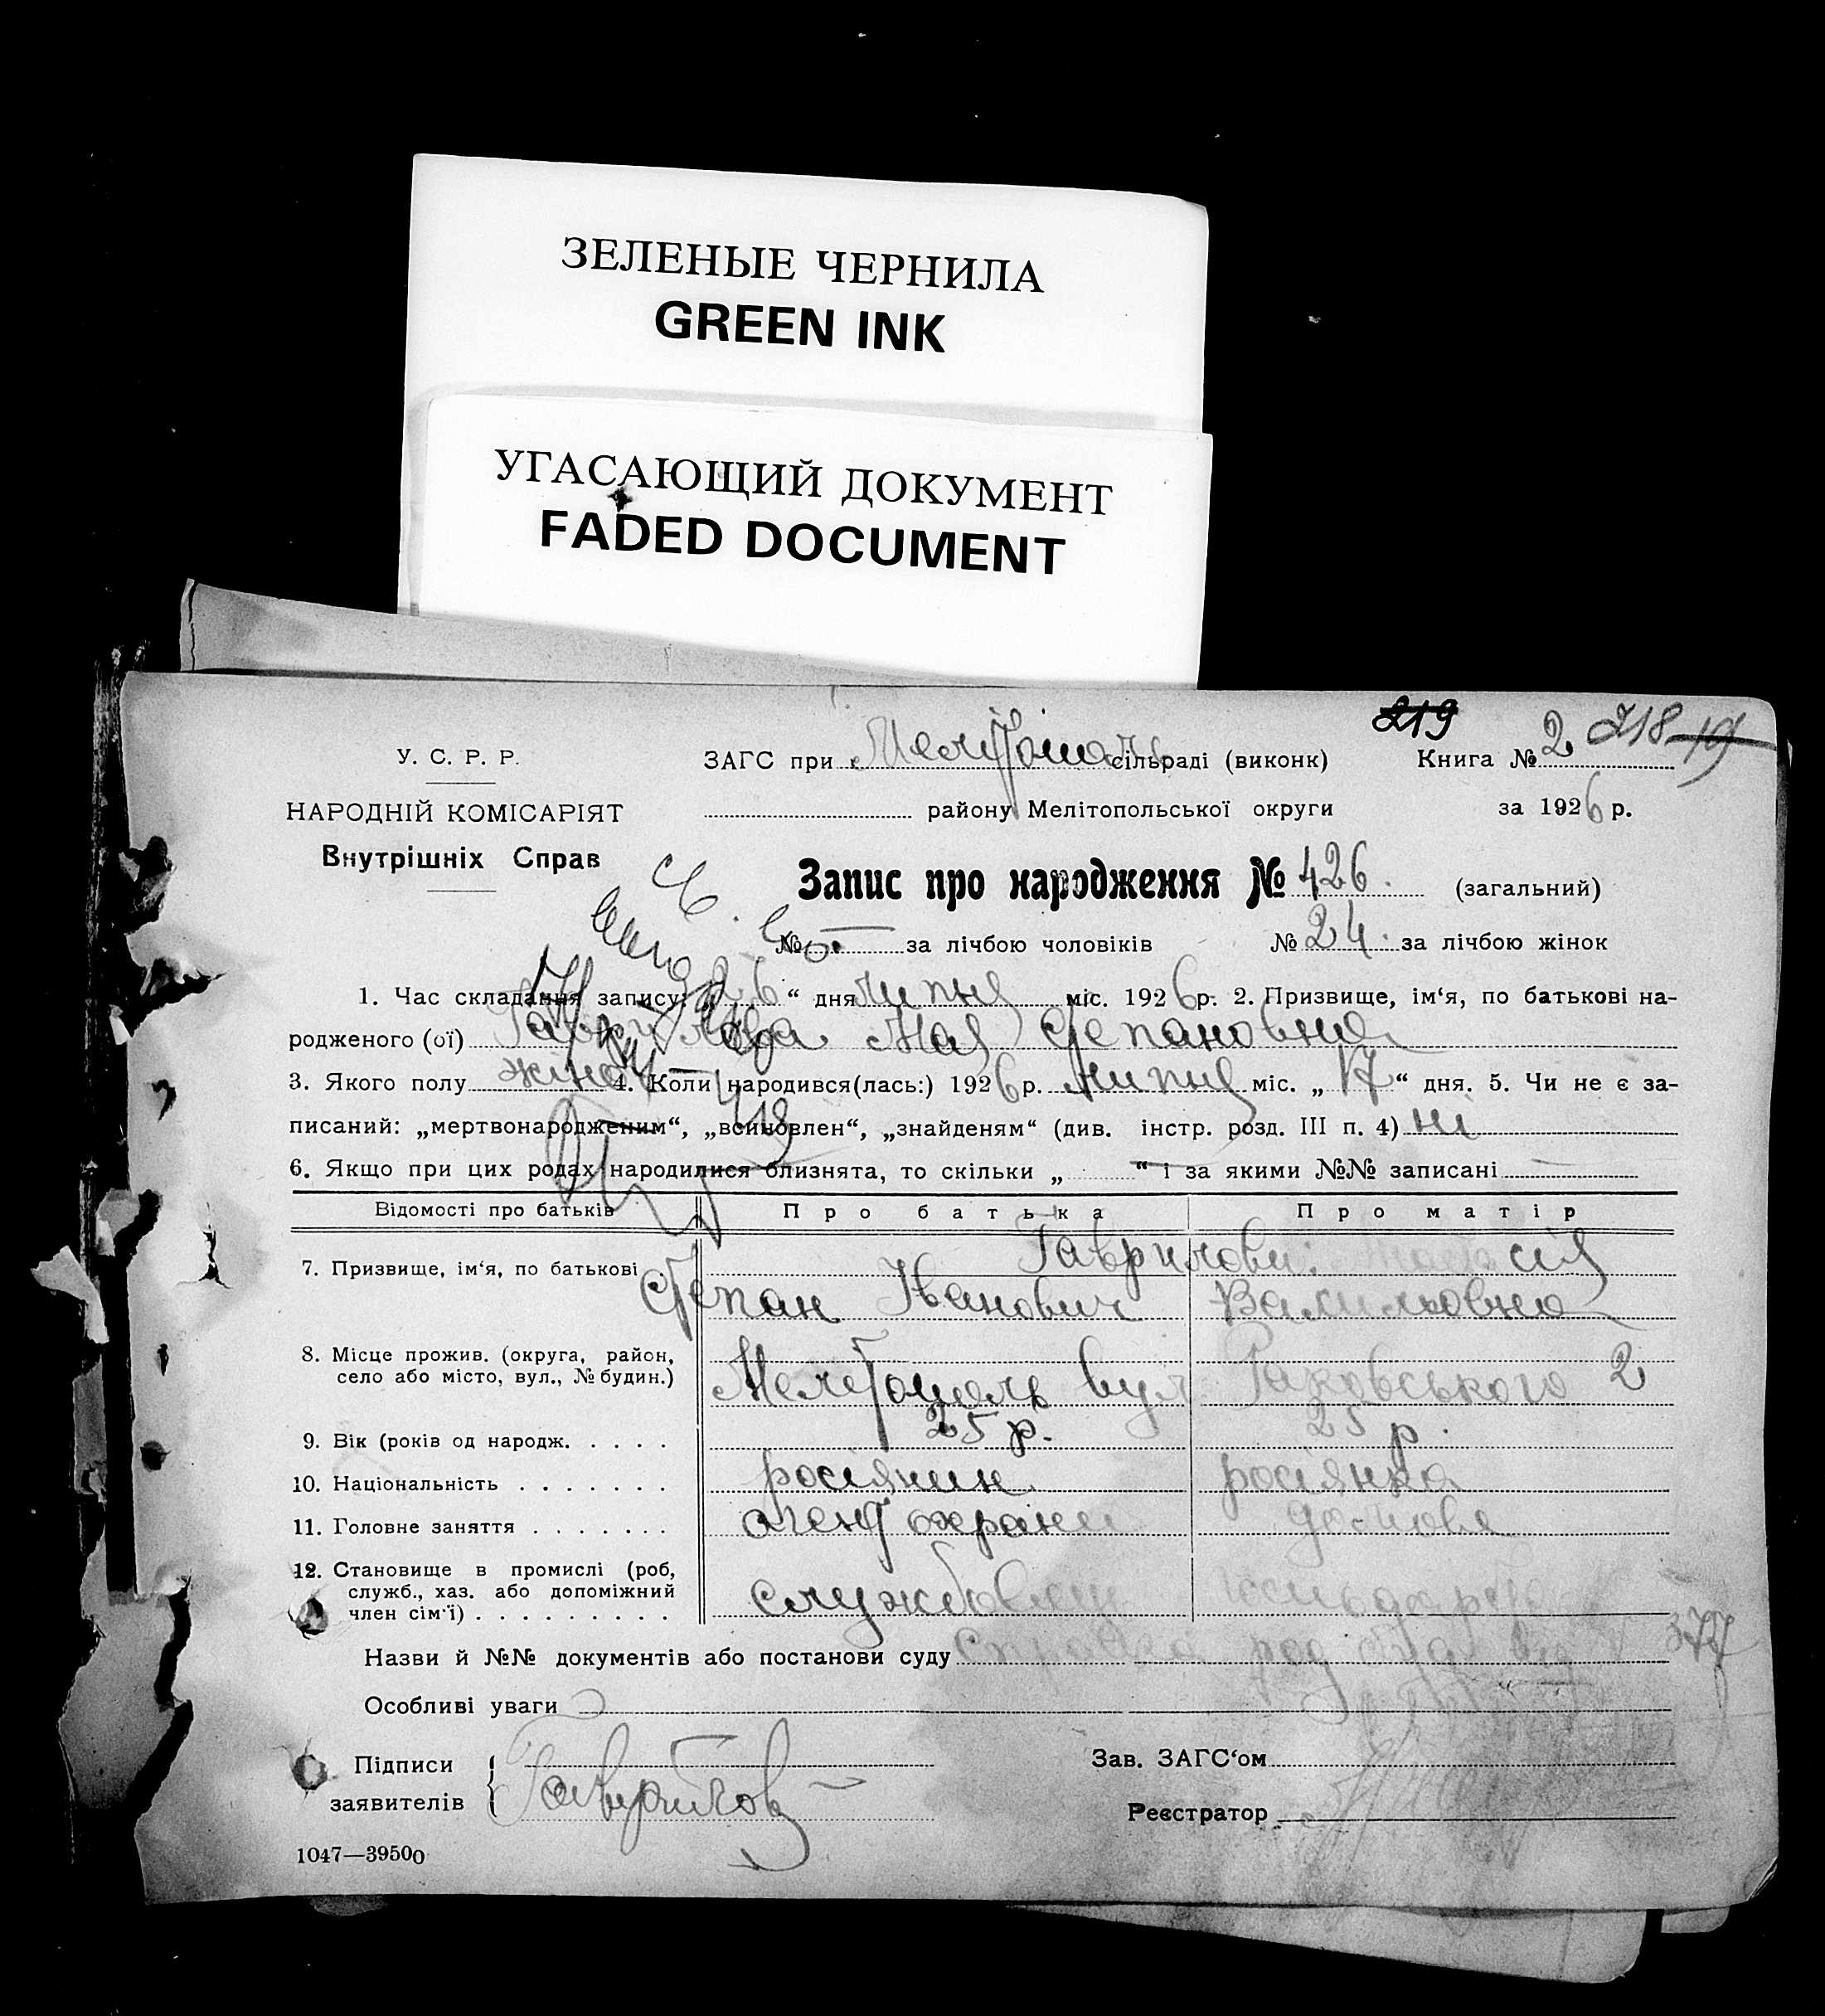 ЗЕЛЕНЫЕ ЧЕРНИЛА
GREEN INK
УГАСАЮЩИЙ ДОКУМЕНТ
FADED DOCUMENT
219
218
У. С. Р. Р.
НАРОДНІЙ КОМІСАРІЯТ
Внутрішніх Справ
ЗАГС при Мелітополь сільраді (виконк) Книга № 2
району Мелітопольської округи за 1926 р.
Запис про народження № 426. (загальний)
№ — за лічбою чоловіків № 24. за лічбою жінок
1. Час складання запису: „26“ дня липня міс. 1926 р. 2. Призвище, ім‘я, по батькові на-
родженого (ої) Гаврилова Мая Степановна
3. Якого полу жіноч 4. Коли народився(лась:) 1926 р. липня міс. „17“ дня. 5. Чи не є за-
писаний: „мертвонародженим“, „всиновлен“, „знайденям“ (див. інстр. розд. III п. 4) ні
6. Якщо при цих родах народилися близнята, то скільки „ — “ і за якими №№ записані
Відомості про батьків Про батька Про матір
7. Призвище, ім‘я, по батькові Гаврилови:
Степан Іванович
8. Місце прожив. (округа, район,
село або місто, вул., № будин.) Мелітополь вул Раковського 2
9. Вік (років од народж. . . . . 25 р. 25 р.
10. Національність . . . . . . . росіянин росіянка
11. Головне заняття . . . . . . . агент охрани домове
12. Становище в промислі (роб,
служб., хаз. або допоміжний
член сім‘ї) . . . . . . . . . службовец
Назви й №№ документів або постанови суду Справка род 377
Особливі уваги
Підписи
заявителів Гаврилов
Зав. ЗАГС‘ом
Реєстратор
1047—39500